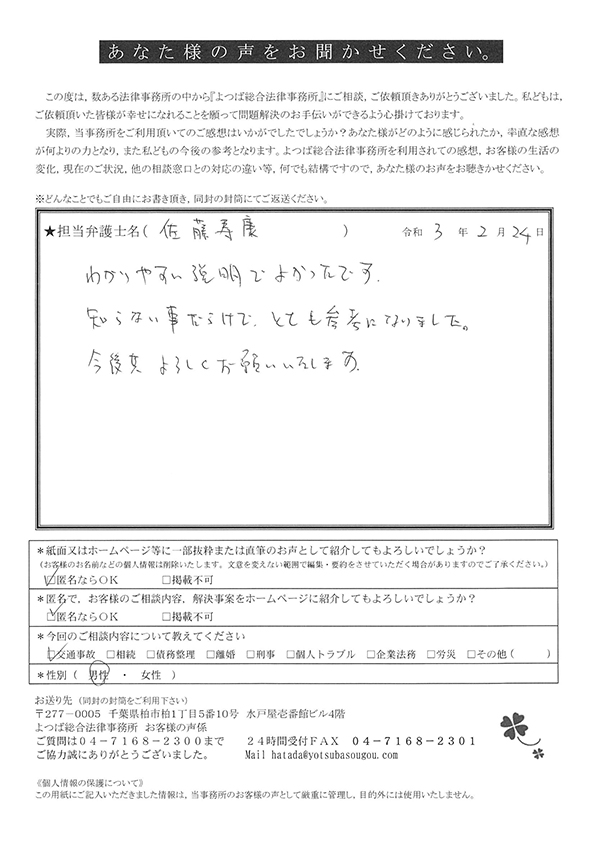 あなた様の声をお聞かせください。
この度は，数ある法律事務所の中から『よつば総合法律事務所』にご相談，ご依頼頂きありがとうございました。私どもは，
ご依頼頂いた皆様が幸せになれることを願って問題解決のお手伝いができるよう心掛けております。
実際，当事務所をご利用頂いてのご感想はいかがでしたでしょうか？あなた様がどのように感じられたか，率直な感想
が何よりの力となり，また私どもの今後の参考となります。よつば総合法律事務所を利用されての感想，お客様の生活の
変化，現在のご状況，他の相談窓口との対応の違い等，何でも結構ですので，あなた様のお声をお聴きかせください。
※どんなことでもご自由にお書き頂き，同封の封筒にてご返送ください。
★担当弁護士名（ 佐藤寿康 ） 令和 3 年 2 月 24 日
わかりやすい説明でよかったです.
知らない事だらけで、とても参考になりました。
今後共 よろしくお願いいたします.
＊紙面又はホームページ等に一部抜粋または直筆のお声として紹介してもよろしいでしょうか？
（お客様のお名前などの個人情報は削除いたします。文意を変えない範囲で編集・要約をさせていただく場合がありますのでご了承ください。）
☑匿名ならOK □掲載不可
＊匿名で，お客様のご相談内容，解決事案をホームページに紹介してもよろしいでしょうか？
☑匿名ならOK □掲載不可
＊今回のご相談内容について教えてください
☑交通事故 □相続 □債務整理 □離婚 □刑事 □個人トラブル □企業法務 □労災 □その他（ ）
＊性別（ 男性 ・ 女性 ）
お送り先（同封の封筒をご利用下さい）
〒277－0005 千葉県柏市柏1丁目5番10号 水戸屋壱番館ビル4階
よつば総合法律事務所 お客様の声係
ご質問は０４－７１６８－２３００まで ２４時間受付ＦＡＸ ０４－７１６８－２３０１
ご協力誠にありがとうございました。 Mail hatada@yotsubasougou.com
《個人情報の保護について》
この用紙にご記入いただきました情報は，当事務所のお客様の声として厳重に管理し，目的外には使用いたしません。